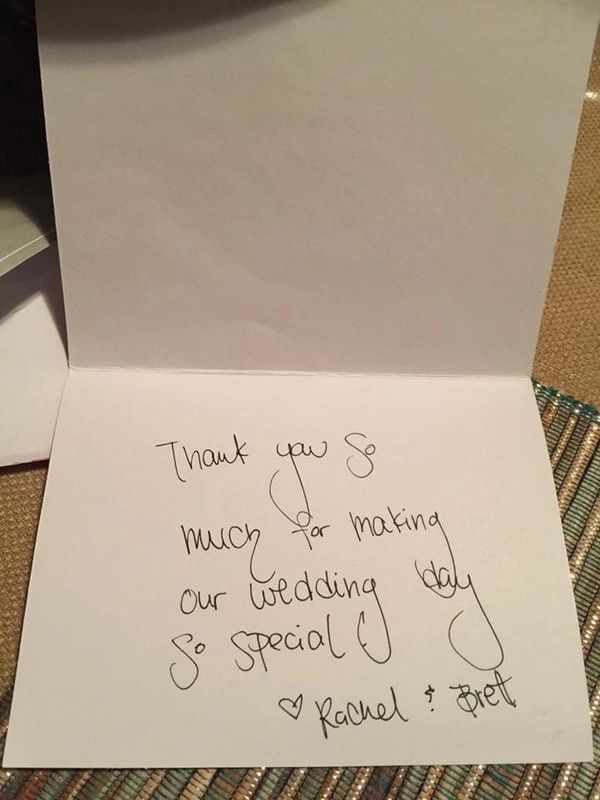 Thank you so
much for making
our wedding day
so special!
♡ Rachel & Bret